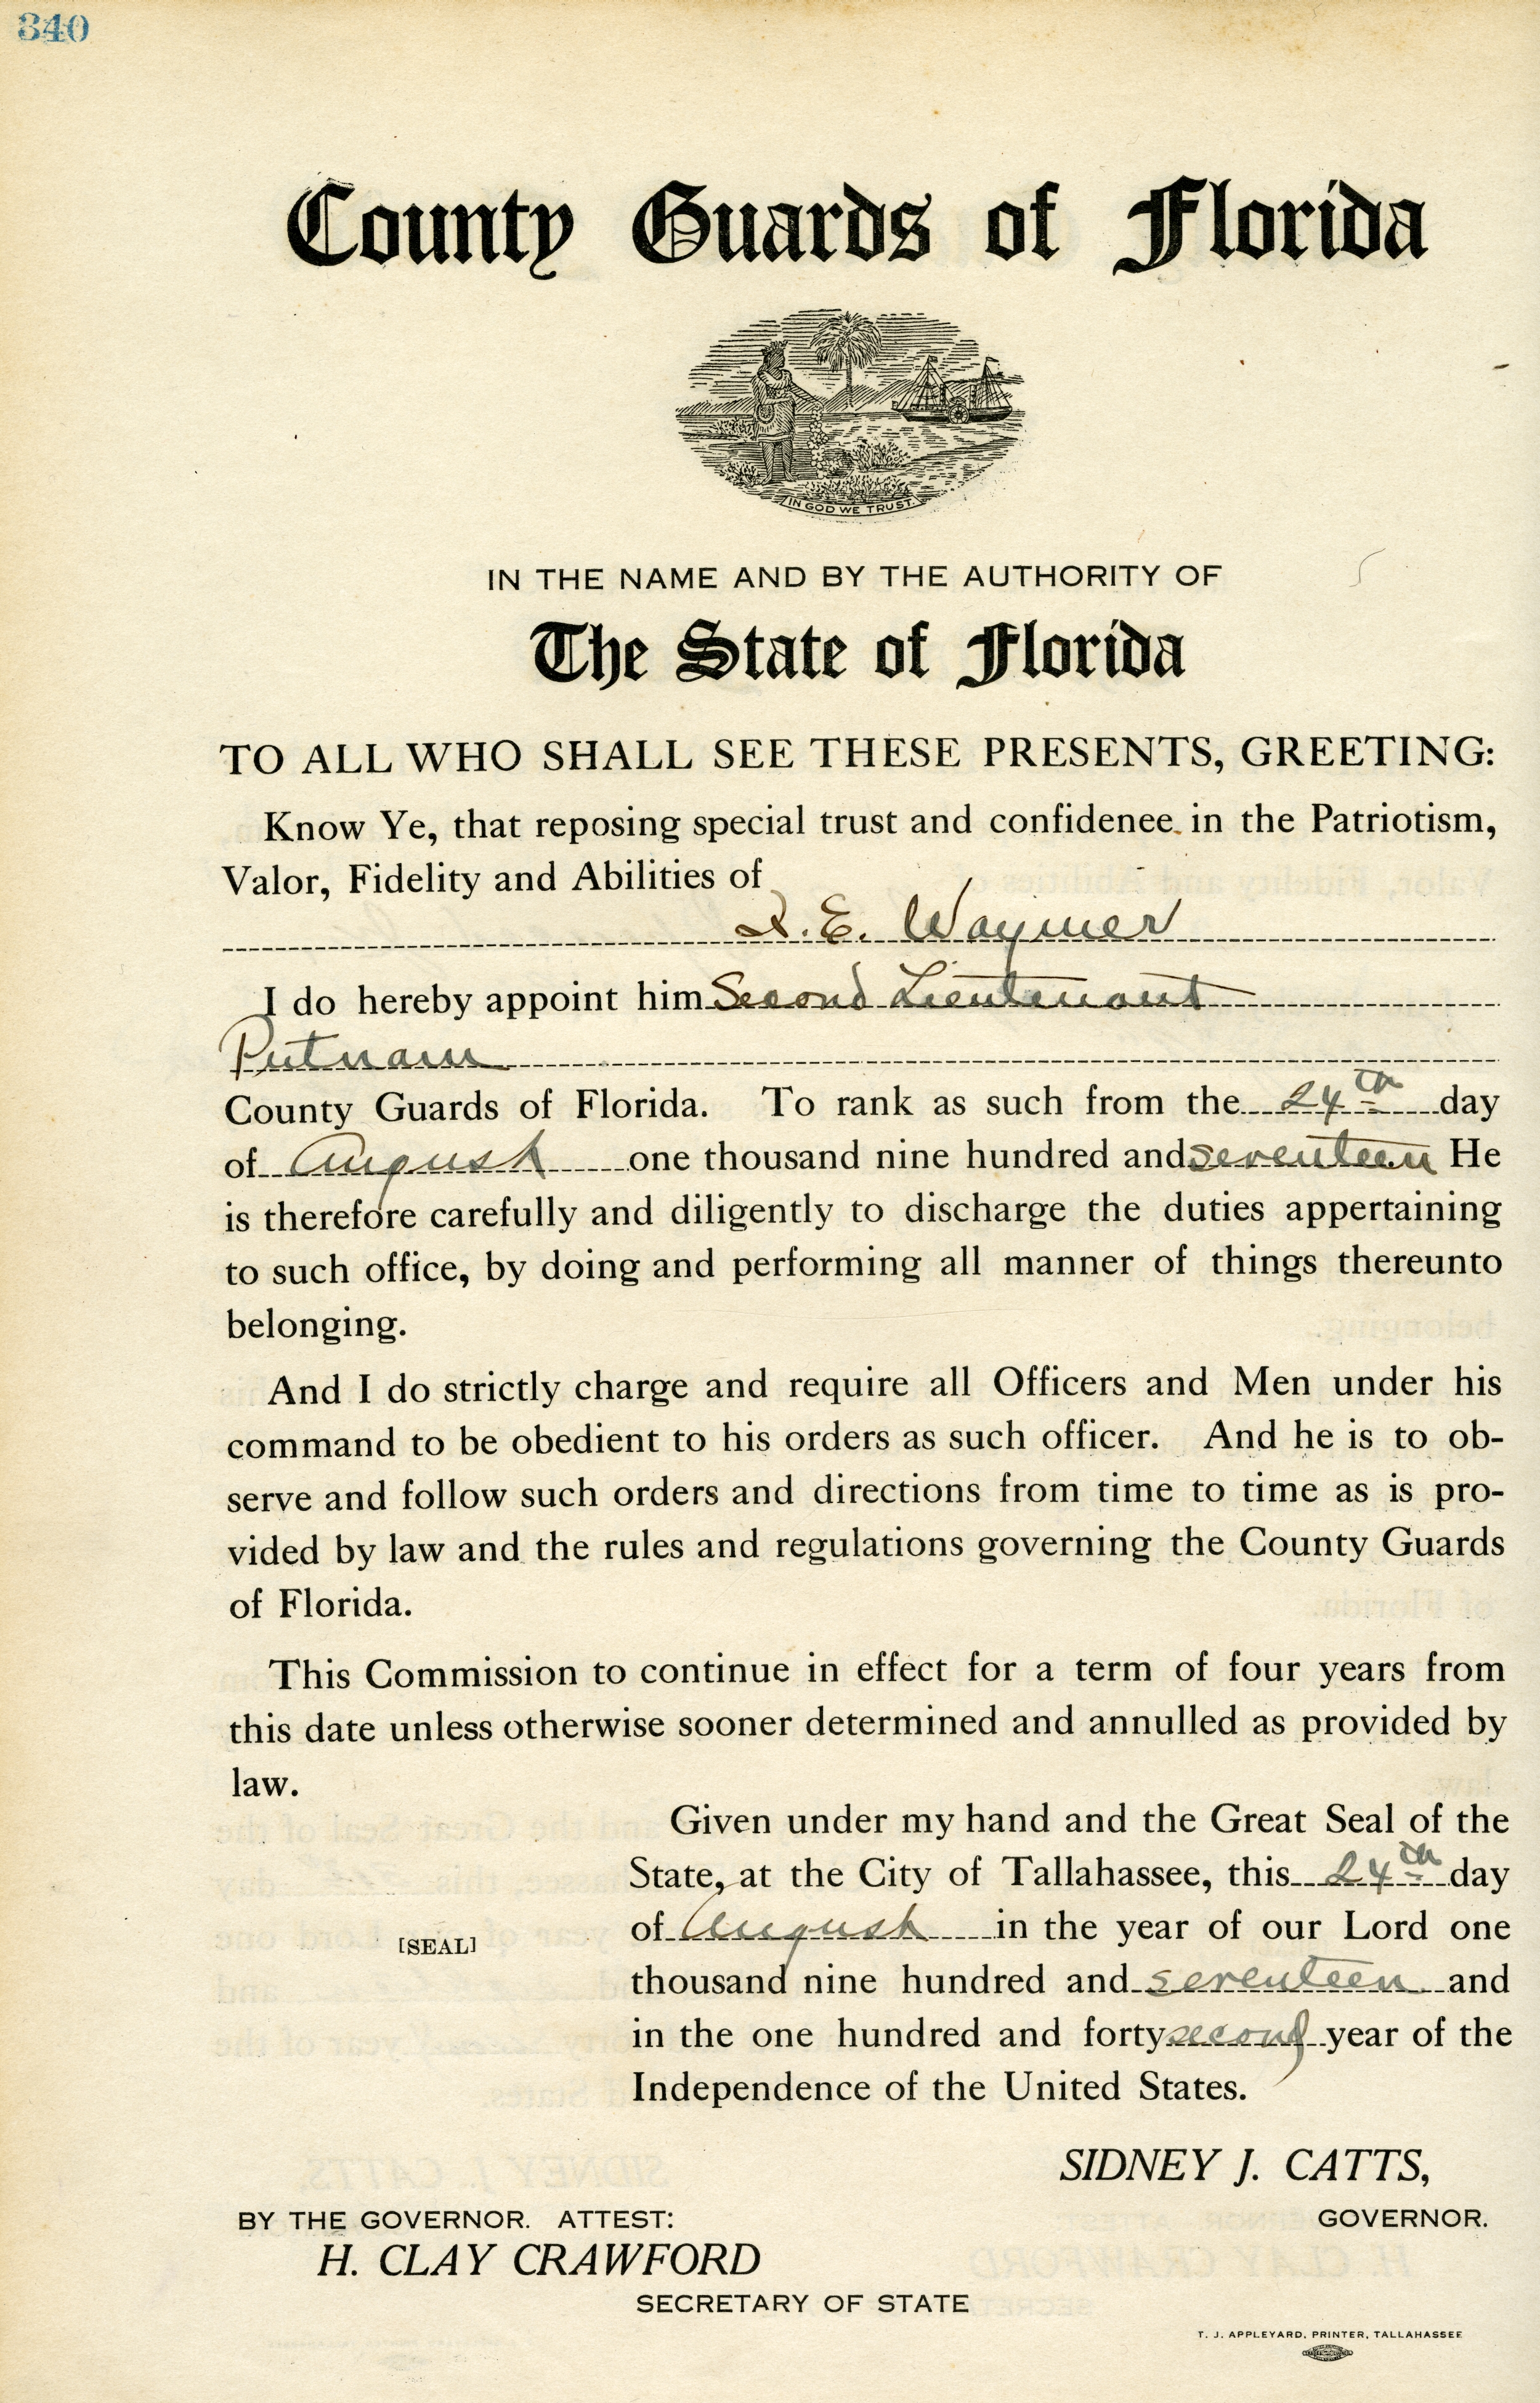 340
County Guards of Florida
IN GOD WE TRUST
IN THE NAME AND BY THE AUTHORITY OF
The State of Florida
TO ALL WHO SHALL SEE THESE PRESENTS, GREETING:
Know Ye, that reposing special trust and confidenee in the Patriotism,
Valor, Fidelity and Abilities of
E. Waymer
I do hereby appoint him Second Lieutenant
Putnam
County Guards of Florida. To rank as such from the 24th day
of August one thousand nine hundred and seventeen He
is therefore carefully and diligently to discharge the duties appertaining
to such office, by doing and performing all manner of things thereunto
belonging.
And I do strictly charge and require all Officers and Men under his
command to be obedient to his orders as such officer. And he is to ob-
serve and follow such orders and directions from time to time as is pro-
vided by law and the rules and regulations governing the County Guards
of Florida.
This Commission to continue in effect for a term of four years from
this date unless otherwise sooner determined and annulled as provided by
law.
Given under my hand and the Great Seal of the
State, at the City of Tallahassee, this 24th day
of August in the year of our Lord one
[SEAL]
thousand nine hundred and seventeen and
in the one hundred and forty second year of the
Independence of the United States.
SIDNEY J. CATTS,
GOVERNOR.
BY THE GOVERNOR. ATTEST:
H. CLAY CRAWFORD
SECRETARY OF STATE
T. J. APPLEYARD, PRINTER, TALLAHASSEE